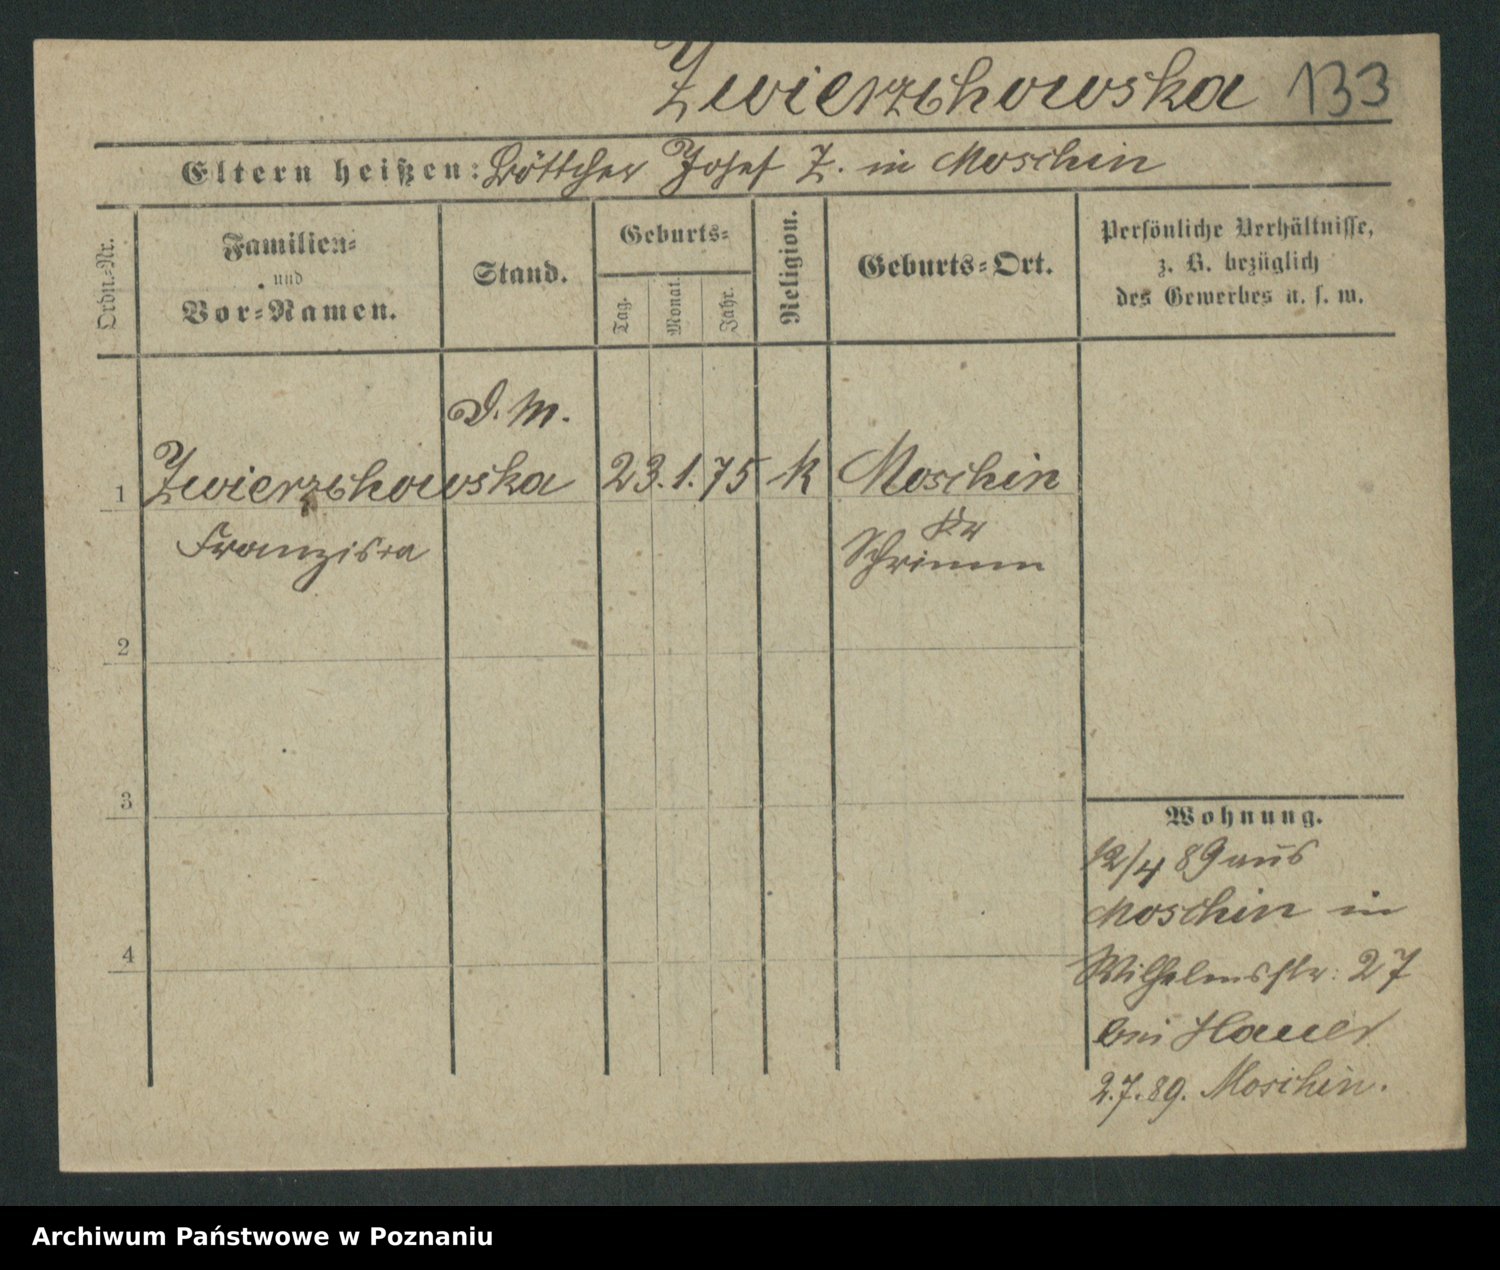 Zwierzchowska 133
Eltern heißen: Böttcher Josef Z. in Moschin
Ordn.-Nr.
Familien-
und
Vor-Namen.
Stand.
Geburts-
Tag.
Monat.
Jahr.
Religion.
Geburts-Ort.
Persönliche Verhältnisse,
z. B. bezüglich
des Gewerbes u. s. w.
D. M.
1 Zwierzchowska 23. 1. 75 K Moschin
Franziska
Kr
Schrimm
2
3
4
Wohnung.
12/4 89 aus
Moschin in
Wilhelmstr: 27
bei Hauer
2.7.89. Moschin.
Archiwum Państwowe w Poznaniu